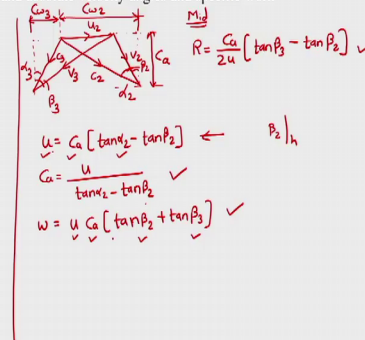 Cω₃ Cω₂
u₂
α₃ c₃ v₃ c₂ v₂ β₂ Ca
β₃ α₂
Mid
R = Ca/2u [tanβ₃ - tanβ₂] ✓
u = Ca [tanα₂ - tanβ₂] ← β₂|h
Ca = u/(tanα₂ - tanβ₂) ✓
w = u Ca [tanβ₂ + tanβ₃] ✓